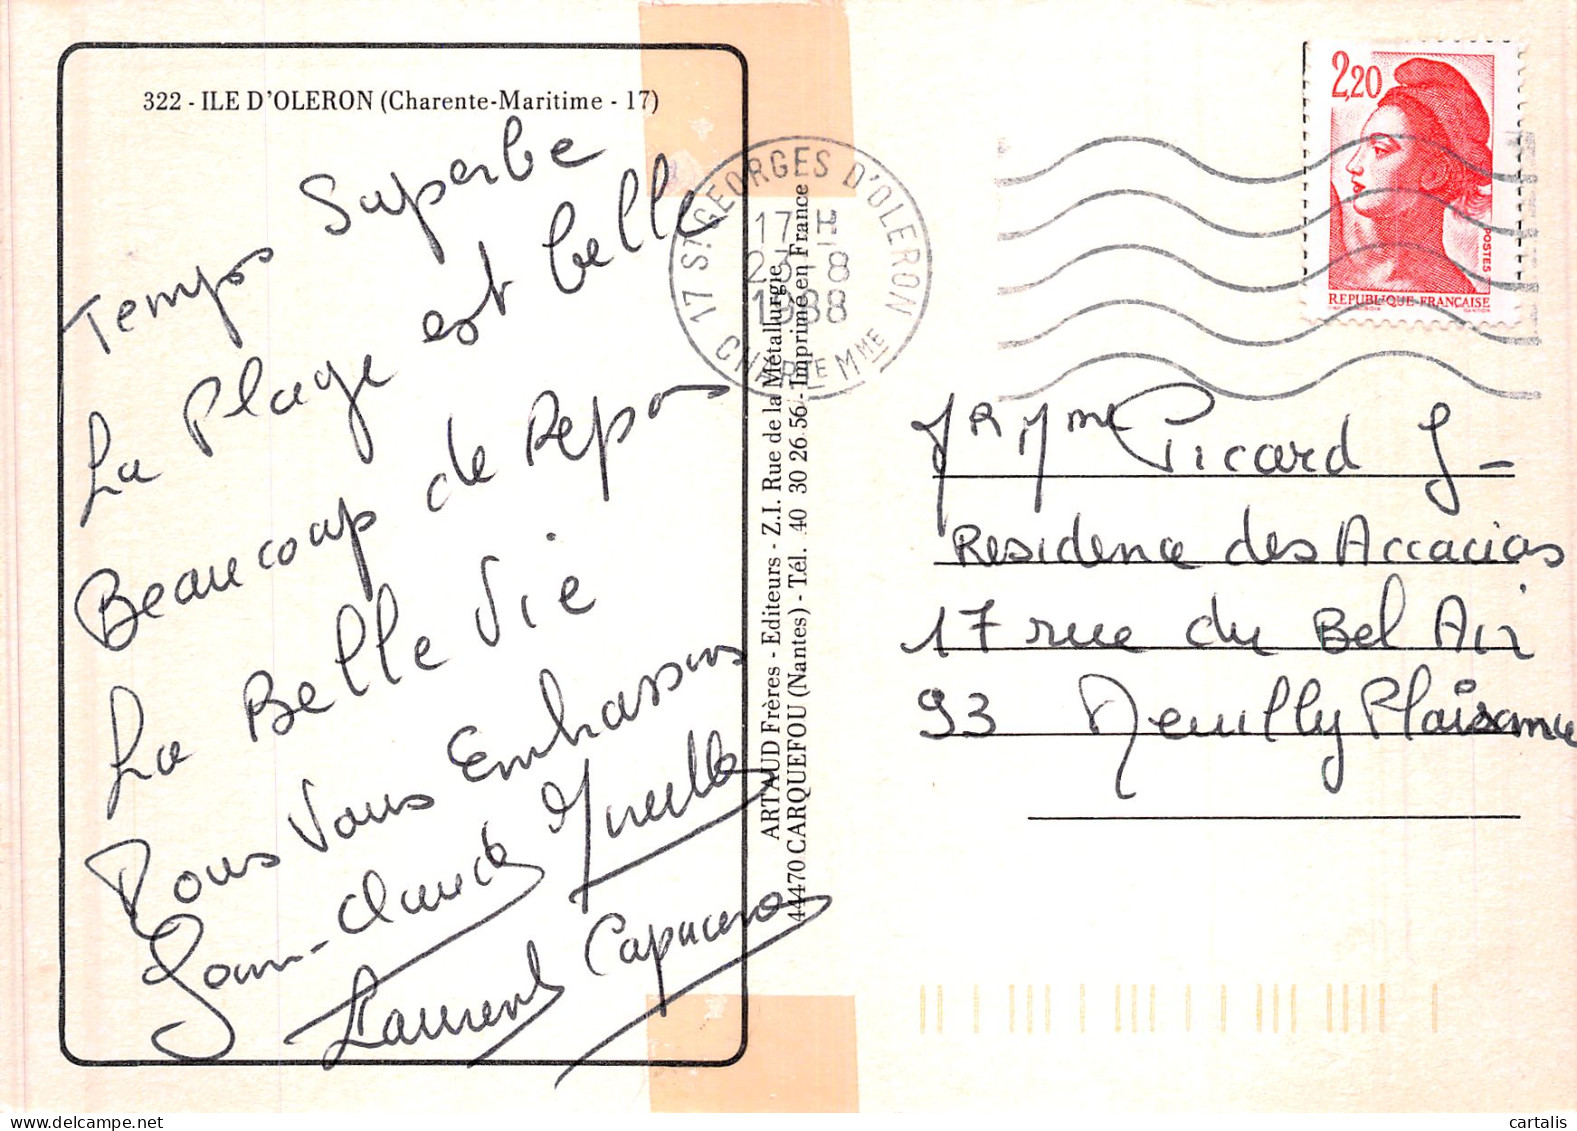 322 - ILE D'OLERON (Charente-Maritime - 17)
Temps Superbe
La Plage est belle
Beaucoup de Repos
La Belle Vie
Nous Vous Embrassons
Jean-Claude
Laurent Capucine
ARTAUD Frères - Editeurs - Z.I. Rue de la Métallurgie
44470 CARQUEFOU (Nantes) - Tél. 40 30 26 56 - Imprimé en France
17 ST GEORGES D'OLERON
17 H
23-8
1988
CHARTE MME
2,20
POSTES
REPUBLIQUE FRANÇAISE
GANDON
Mr Mme Picard G-
Residence des Accacias
17 rue du Bel Air
93 Neuilly Plaisance
cartalis